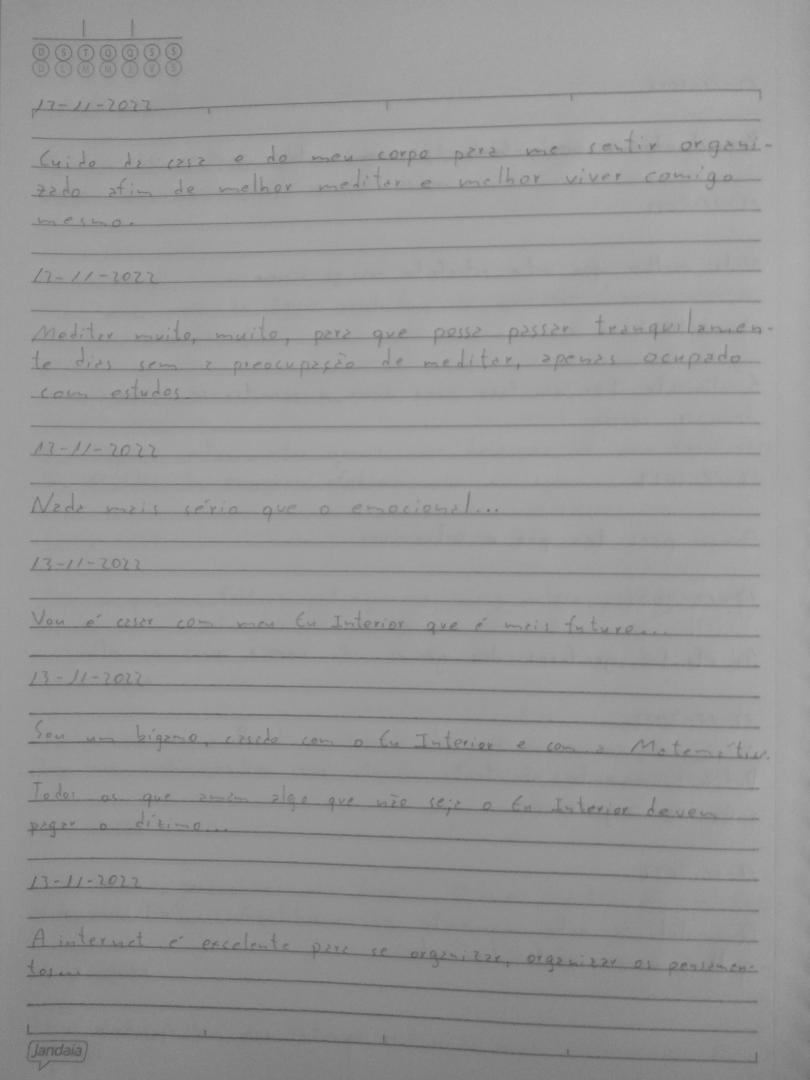 D S T Q Q S S
D L M M J V S
12-11-2022
Cuido da casa e do meu corpo para me sentir organi-
zado afim de melhor meditar e melhor viver comigo
mesmo.
12-11-2022
Meditar muito, muito, para que possa passar tranquilamen-
te dias sem a preocupação de meditar, apenas ocupado
com estudos.
12-11-2022
Nada mais sério que o emocional...
13-11-2022
Vou é casar com meu Eu Interior que é mais futuro...
13-11-2022
Sou um bígamo, casado com o Eu Interior e com a Matemática.
Todos os que amam algo que não seja o Eu Interior devem
pagar o dízimo...
13-11-2022
A internet é excelente para se organizar, organizar os pensamen-
tos...
Jandaia